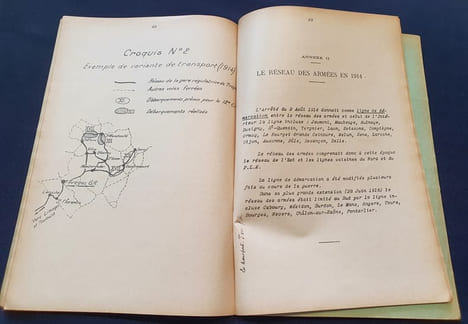 Croquis N°2
Exemple de variante de transport (1914)
Réseau de la gare régulatrice de
Autres voies ferrées
Débarquements prévus pour le
Débarquements réalisés
ANNEXE II
LE RÉSEAU DES ARMÉES EN 1914
L'arrêté du 2 Août 1914 donnait comme ligne de dé-
marcation entre le réseau des armées et celui de l'Inté-
rieur la ligne incluse : Jeumont, Maubeuge, Aulnoye,
Busigny, St-Quentin, Tergnier, Laon, Soissons, Compiègne,
Ormoy, Le Bourget Grande Ceinture, Melun, Sens, Laroche,
Dijon, Auxonne, Dôle, Besançon, Delle.
Le réseau des armées comprenait donc à cette époque
le réseau de l'Est et les lignes voisines du Nord et du
P.L.M.
La ligne de démarcation a été modifiée plusieurs
fois au cours de la guerre.
Dans sa plus grande extension (28 Juin 1918) le
réseau des armées était limité au Sud par la ligne in-
cluse Cabourg, Mézidon, Surdon, Le Mans, Angers, Tours,
Bourges, Nevers, Châlon-sur-Saône, Pontarlier.